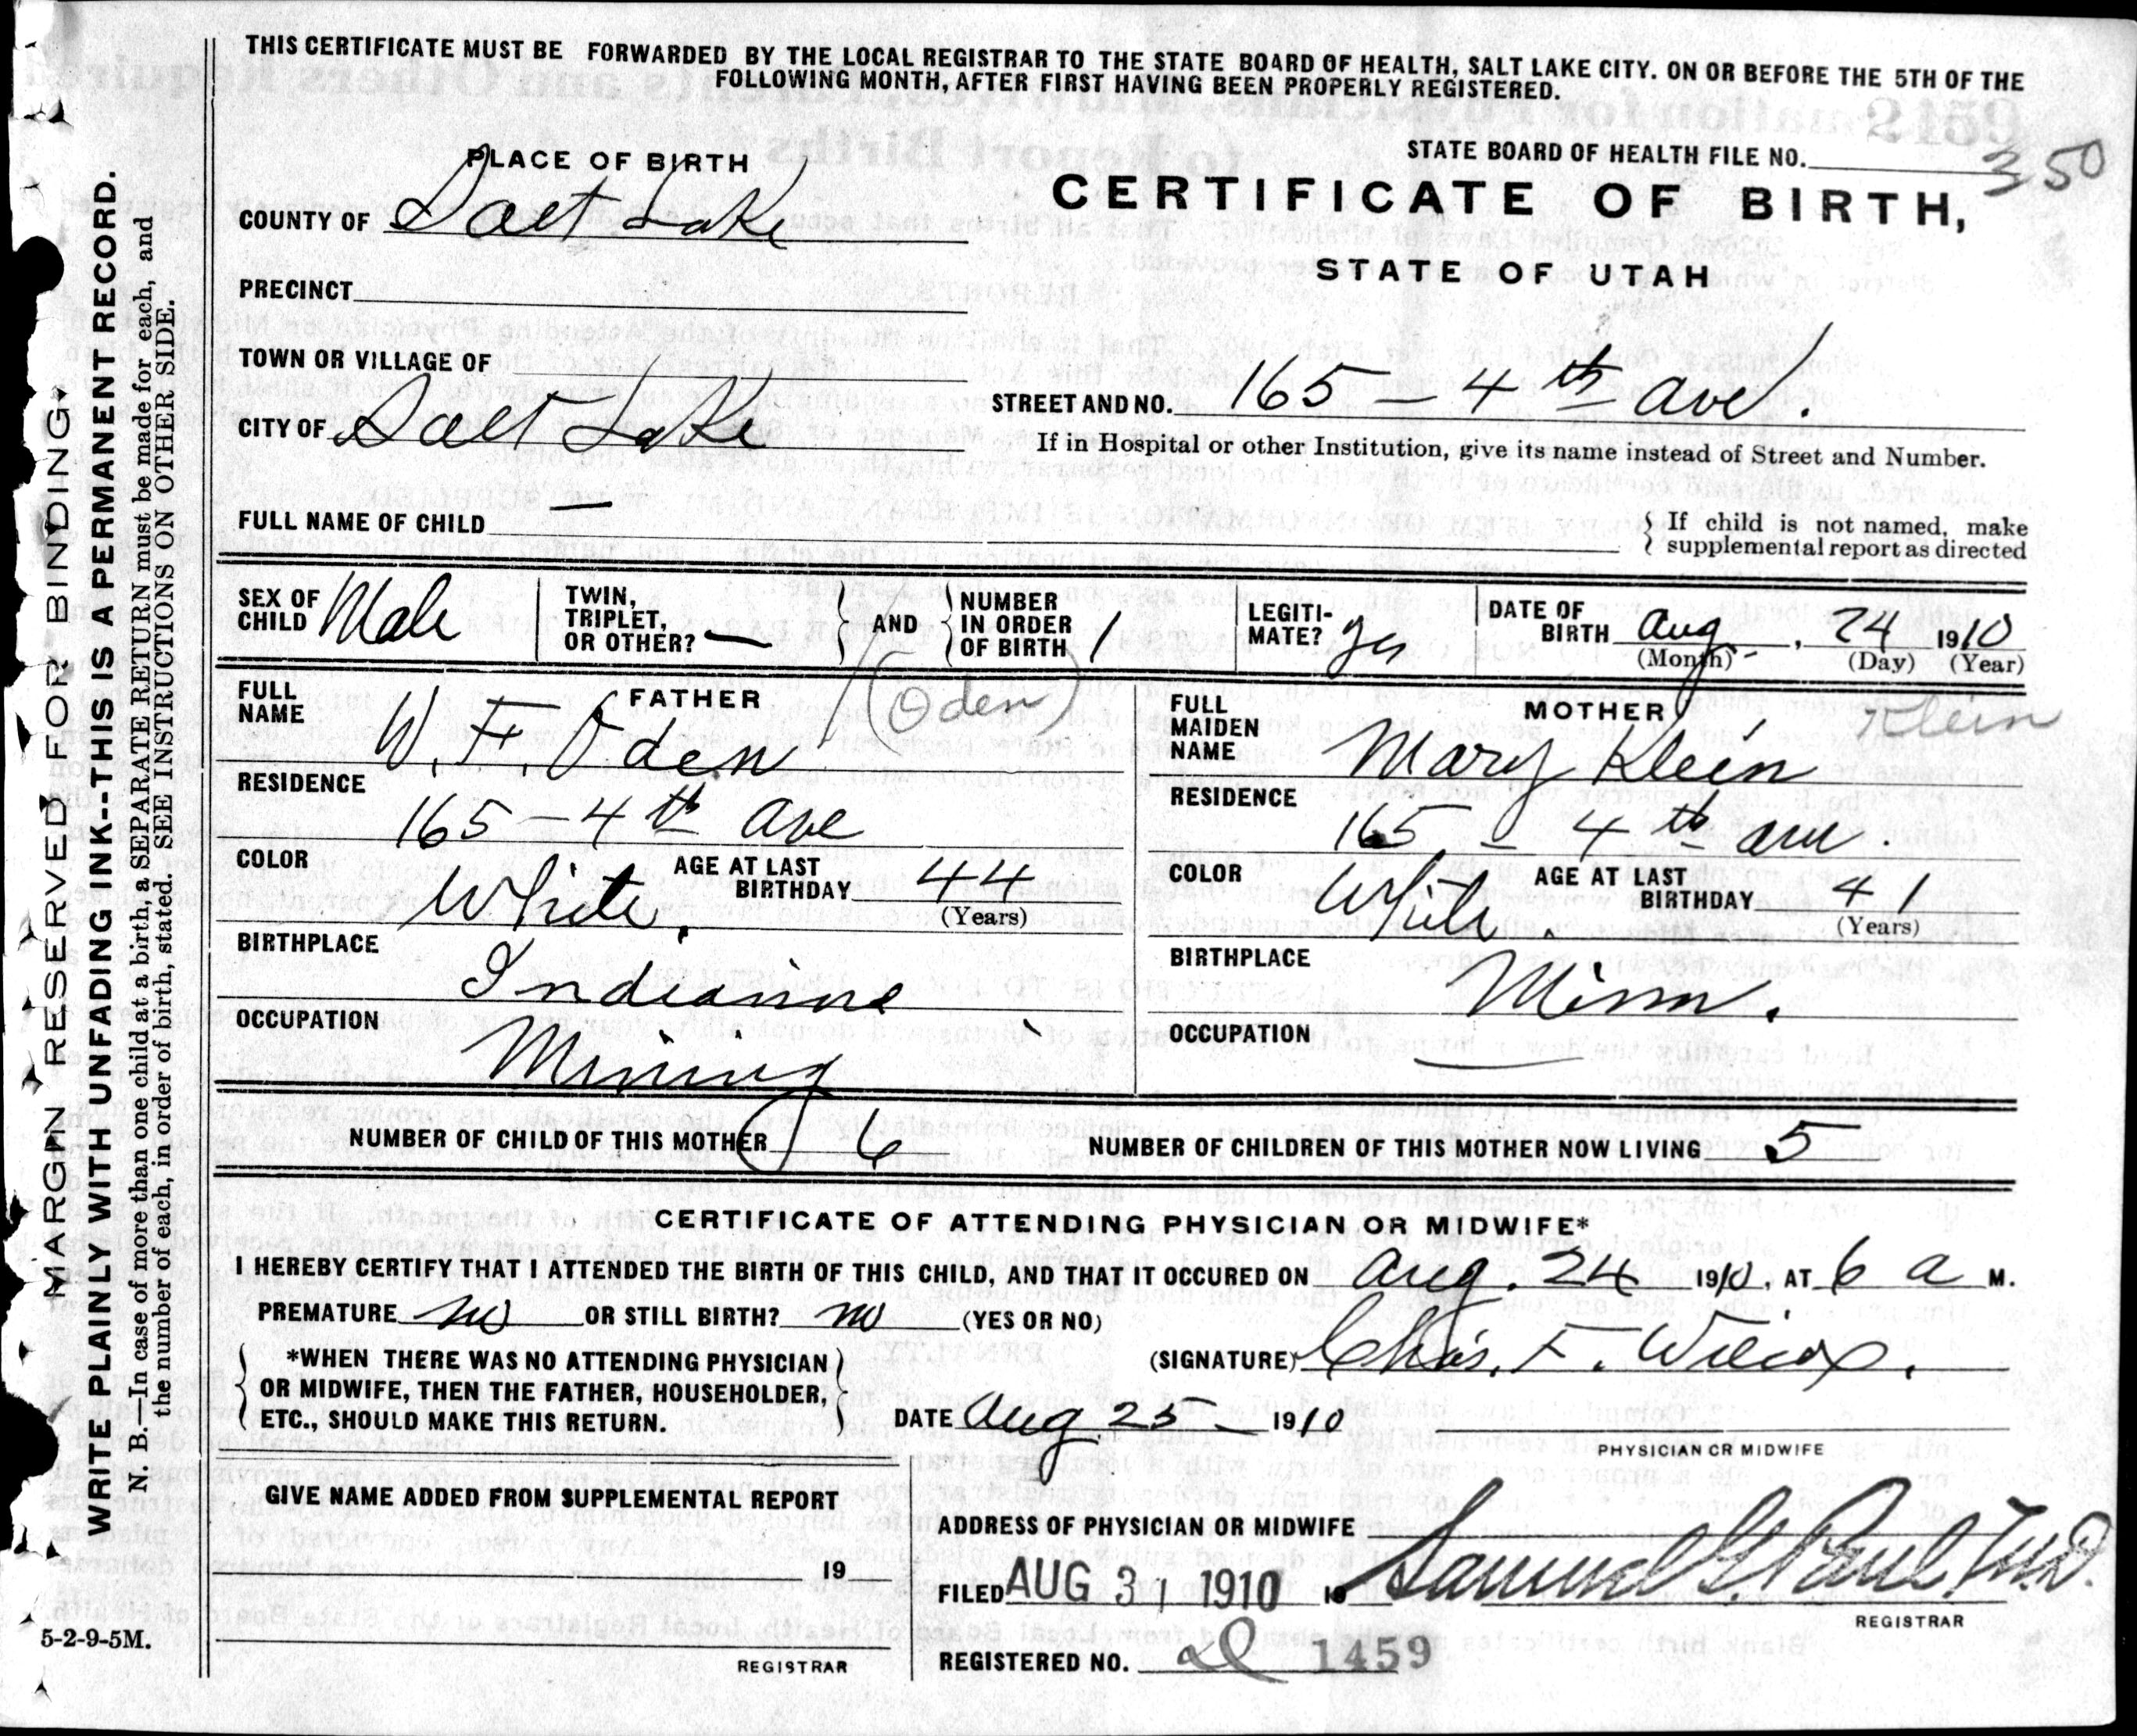 THIS CERTIFICATE MUST BE FORWARDED BY THE LOCAL REGISTRAR TO THE STATE BOARD OF HEALTH, SALT LAKE CITY. ON OR BEFORE THE 5TH OF THE
FOLLOWING MONTH, AFTER FIRST HAVING BEEN PROPERLY REGISTERED.
STATE BOARD OF HEALTH FILE NO. 350
CERTIFICATE OF BIRTH,
STATE OF UTAH
PLACE OF BIRTH
COUNTY OF Salt Lake
PRECINCT
TOWN OR VILLAGE OF
CITY OF Salt Lake
STREET AND NO. 165 – 4th ave.
If in Hospital or other Institution, give its name instead of Street and Number.
FULL NAME OF CHILD —
If child is not named, make
supplemental report as directed
SEX OF
CHILD Male
TWIN,
TRIPLET,
OR OTHER? —
AND
NUMBER
IN ORDER
OF BIRTH 1
LEGITI-
MATE? Yes
DATE OF
BIRTH Aug, 24 1910
(Month) (Day) (Year)
FATHER
FULL
NAME W. F. Oden (Oden)
RESIDENCE
165 – 4th ave
COLOR White.
AGE AT LAST
BIRTHDAY 44
(Years)
BIRTHPLACE
Indianna
OCCUPATION
Mining
MOTHER
FULL
MAIDEN
NAME Mary Klein Klein
RESIDENCE
165 – 4th ave.
COLOR White.
AGE AT LAST
BIRTHDAY 41
(Years)
BIRTHPLACE
Minn.
OCCUPATION —
NUMBER OF CHILD OF THIS MOTHER 6
NUMBER OF CHILDREN OF THIS MOTHER NOW LIVING 5
CERTIFICATE OF ATTENDING PHYSICIAN OR MIDWIFE*
I HEREBY CERTIFY THAT I ATTENDED THE BIRTH OF THIS CHILD, AND THAT IT OCCURED ON Aug. 24 1910, AT 6 a M.
PREMATURE no OR STILL BIRTH? no (YES OR NO)
*WHEN THERE WAS NO ATTENDING PHYSICIAN
OR MIDWIFE, THEN THE FATHER, HOUSEHOLDER,
ETC., SHOULD MAKE THIS RETURN.
(SIGNATURE) Chas. F. Wilcox.
DATE Aug 25 – 1910
PHYSICIAN OR MIDWIFE
GIVE NAME ADDED FROM SUPPLEMENTAL REPORT
19
REGISTRAR
ADDRESS OF PHYSICIAN OR MIDWIFE
FILED AUG 31 1910 19 Samuel G. Paul M.D.
REGISTRAR
REGISTERED NO. 1459
MARGIN RESERVED FOR BINDING.
WRITE PLAINLY WITH UNFADING INK--THIS IS A PERMANENT RECORD.
N. B.—In case of more than one child at a birth, a SEPARATE RETURN must be made for each, and
the number of each, in order of birth, stated. SEE INSTRUCTIONS ON OTHER SIDE.
5-2-9-5M.